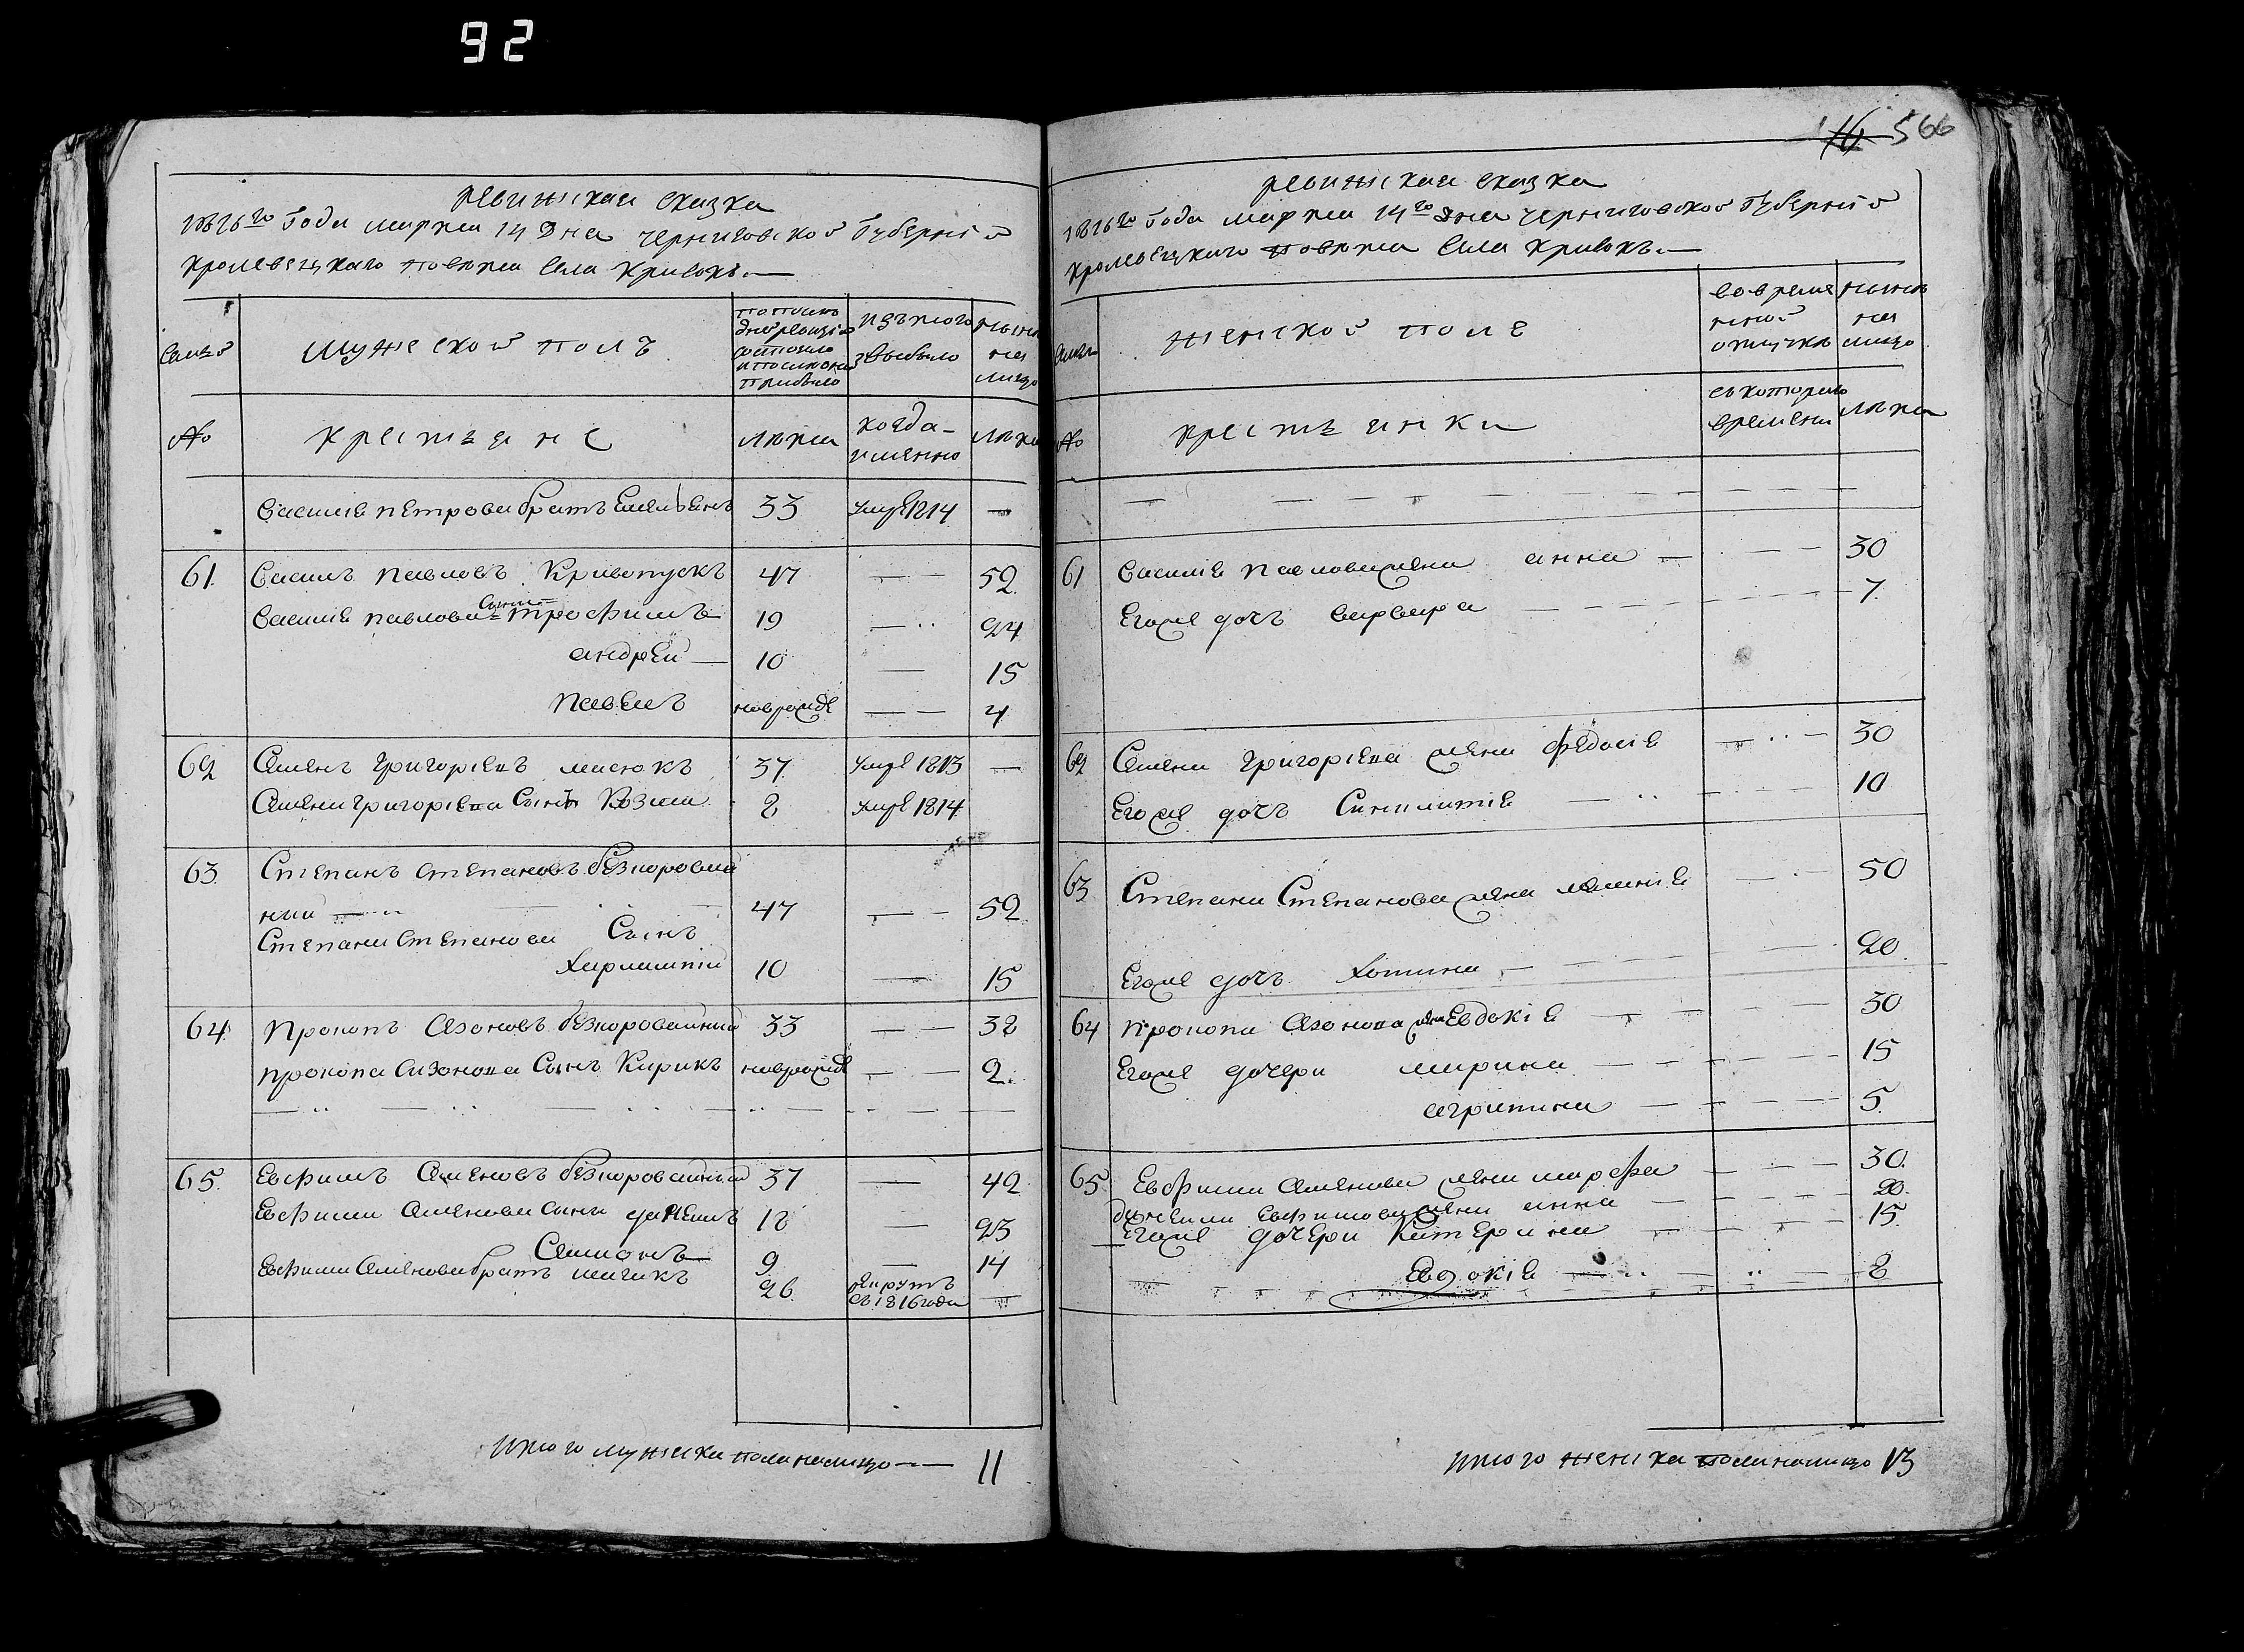 92
566
ревижская сказка
1816го Года марта 14 Дня черниговской Губернїи
кролевецкаго повѣта Села Кривокъ.—
Семьи
мужеской полъ
по последней ревизіи состояло и после оной прибыло
изъ того выбыло
ныне на лицо
№
крестьяне
лѣта
когда именно
лѣта
Василія петрова братъ Емельянъ 33 умре 1814 —
61. Василь павловъ Кривопускъ 47 — — 52
Василія павлова Сыны трофимъ 19 — 24
андрей — 10 — 15
павелъ новрожде — — 4
62 Семенъ григоріевъ 37 умре 1813 —
Семена григоріева Сынъ Козма 8 умре 1814
63 Степанъ степановъ безкоровай
ный — 47 — — 52
Степана степанова Сынъ
Харлампій 10 — 15
64 прокопъ Сазоновъ безкоровайный 33 — — 38
прокопа Сазонова Сынъ Кирикъ новрожде — — 2.
65. Евфимъ Семеновъ безкоровайный 37 — 42
Евфима Семенова сыны данеилъ 18 — 23
Самсонъ 9 — 14
Евфима Семенова братъ 26 рекрутъ съ 1816 года —
итого мужеска пола налицо — 11
ревижская сказка
1816го Года марта 14го Дня черниговской Губернїи
кролевецкаго повѣта Села Кривокъ.—
Семьи
женской полъ
во временной отлучке
ныне на лицо
№
крестьянки
съ котораго времени
лѣта
61 Василія павлова жена анна — — — 30
Егоже дочь варвара — — 7.
62 Семена григоріева жена федосія — — 30
Егоже дочь Синклитія — — 10
63 Степана Степанова жена — — 50
Егоже дочь Хотина — — 20.
64 прокопа Сазонова жена Евдокія — — 30
Егоже дочери марина — — 15
агрипина — — 5.
65 Евфима Семенова жена марфа — — 30.
данеила Евфимова жена анна — — 20.
Егоже дочери Катерина — — 15
Евдокія — — 8
итого женска пола налицо 13